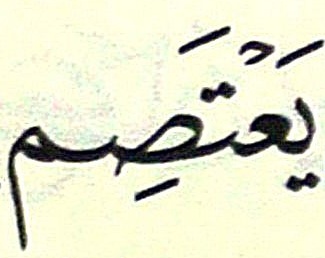 يَعْتَصِم